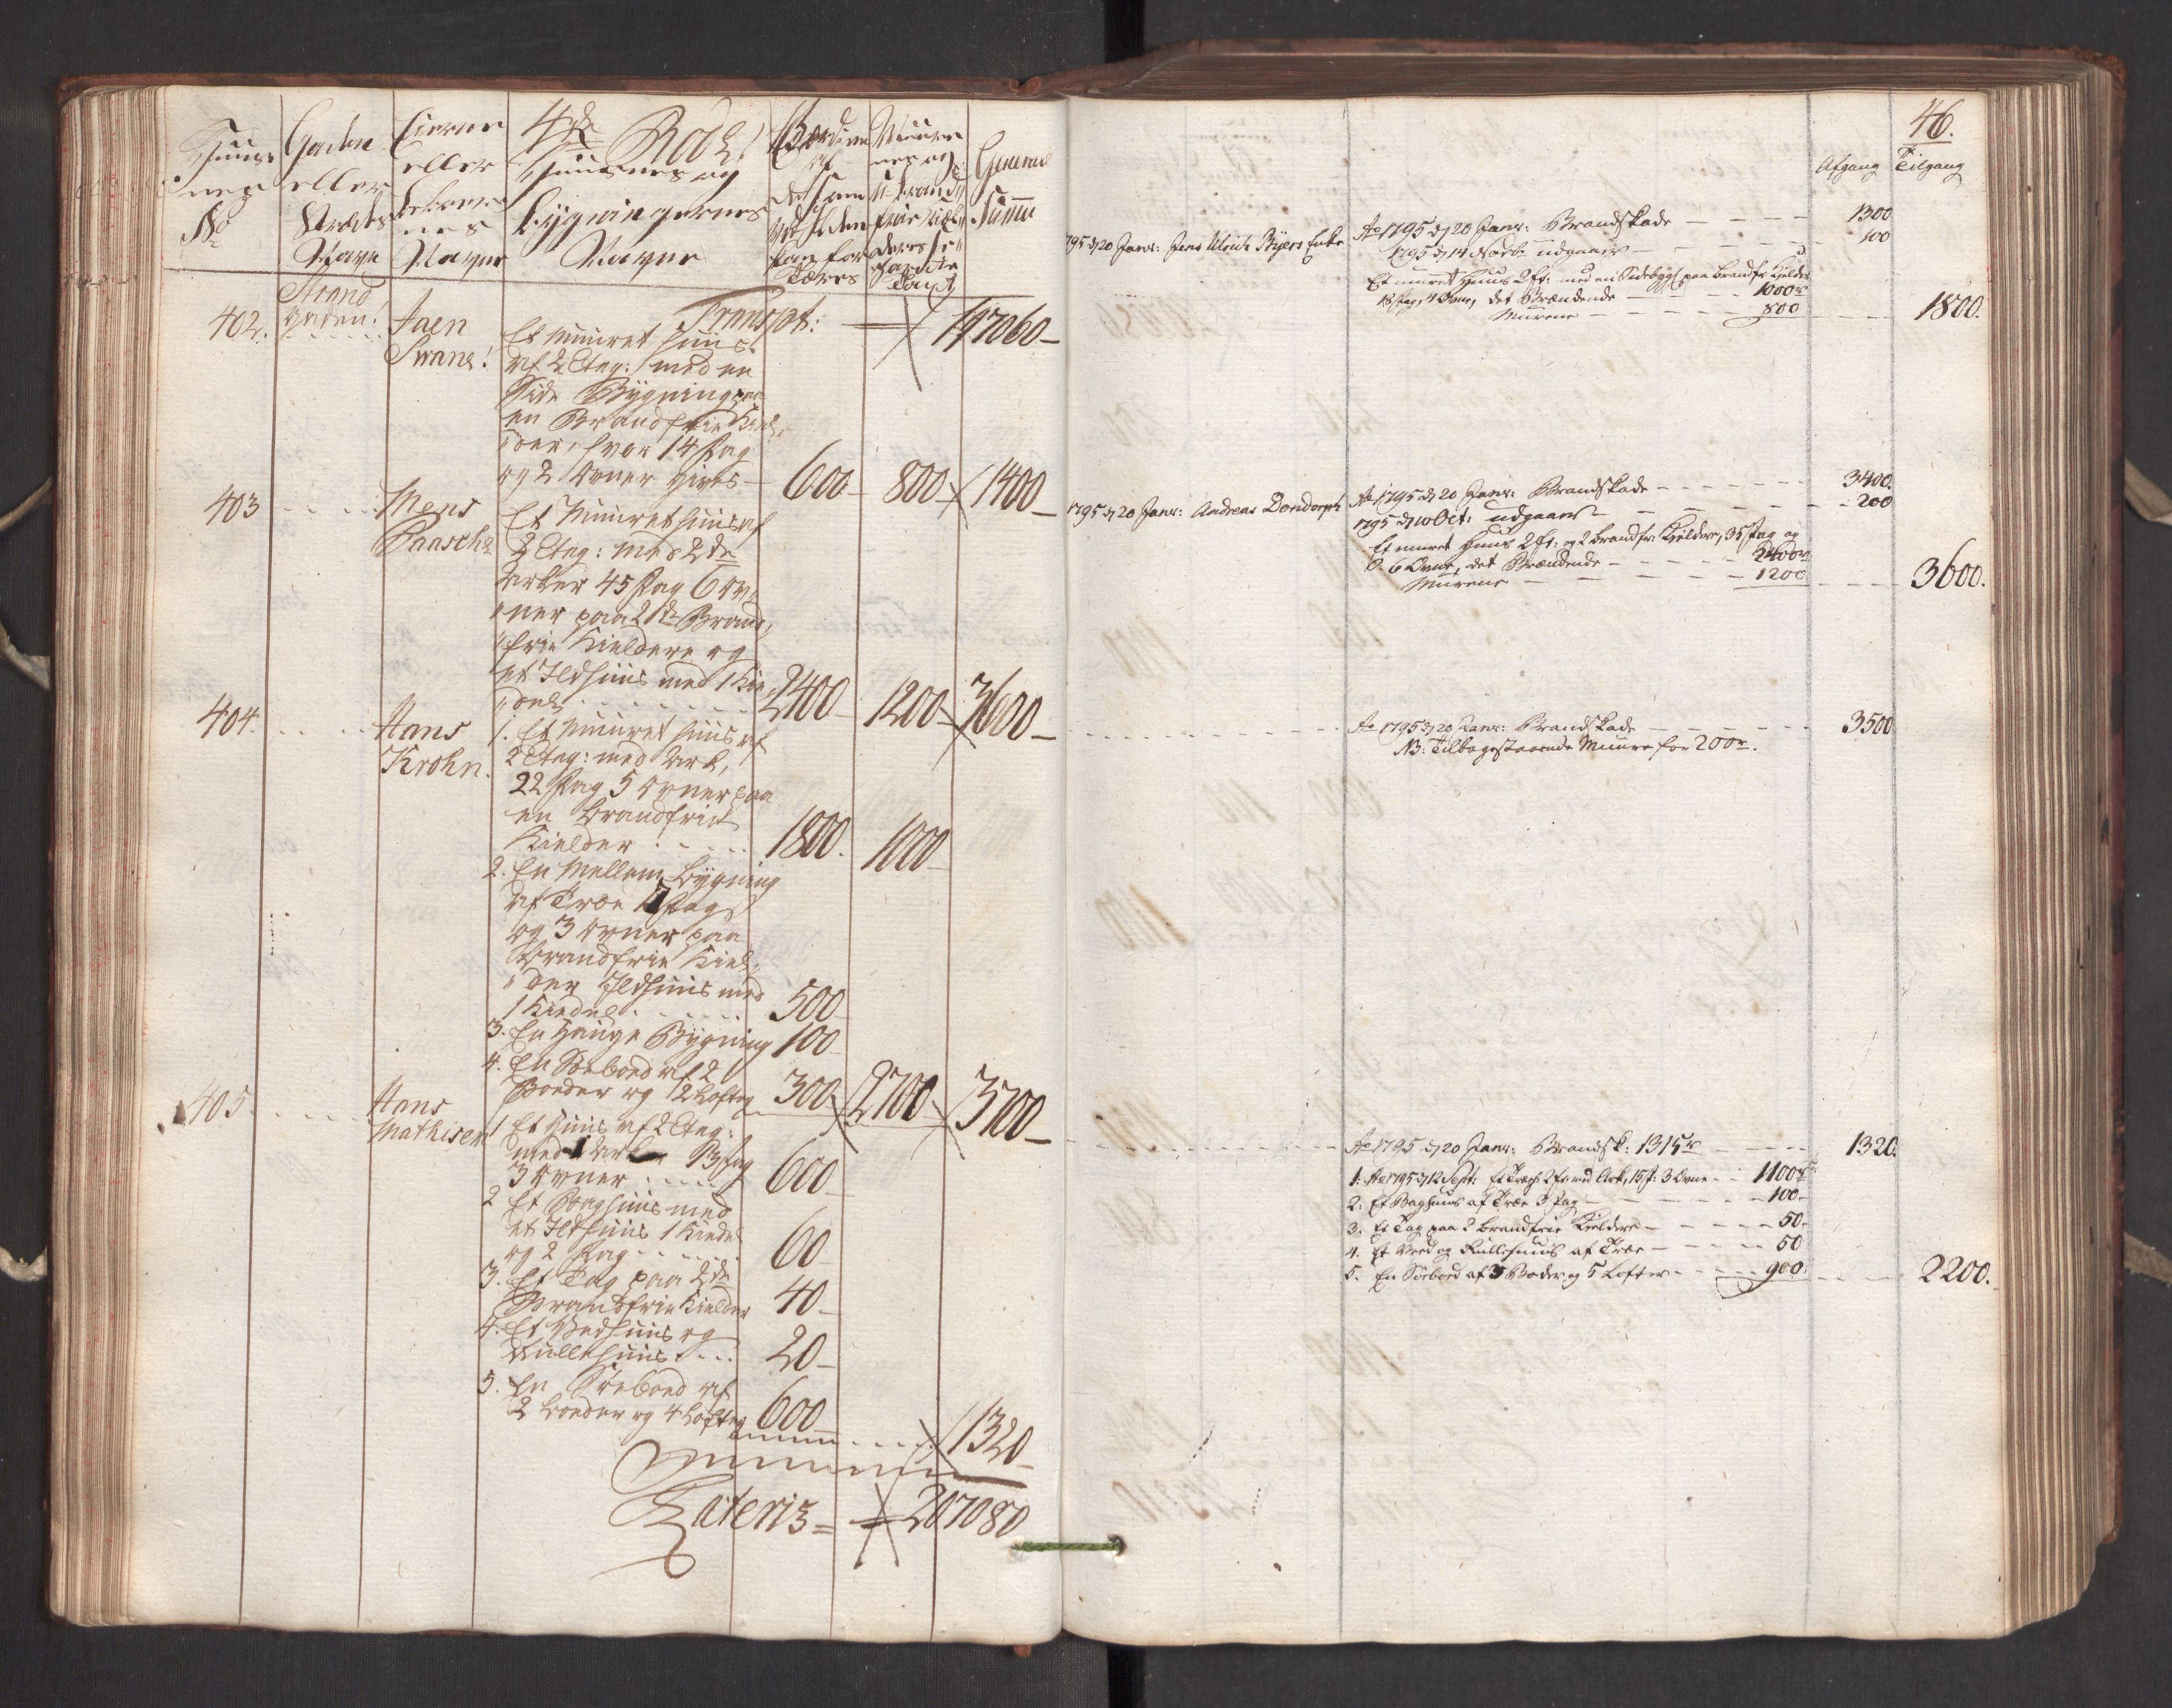 Huuse
nes
No
Gaden
eller
Strædes
Navn
Eierne
eller
Beboer
nes
Navne
4de Rode!
Huusenes og
bygningernes
Navne
Værdien
af
det som
ved Ilden
kan for
tæres
Muure
nes og
brand
frie
deres
Taxt
General
Summa
Transpt: 197060
402.
Strand
gaden!
Jaen
Svane!
Et Muuret Huus
af 2 Etag: med en
Side Bygning paa
en Brandfrie Kiel,
der, hvor 14 Fag
og 2 Ovner gives — 600 — 800 — 1400 —
403
Mons
Paasche
Et Muuret huus af
2 Etag: med 2de
Arker 45 Fag 6 Ov
ner paa 2de Brand,
frie Kieldere og
et Ildhuus med 1 Kie,
del . . . . 2400 — 1200 — 3600 —
404.
Hans
Krohn.
1. Et Muuret huus af
2 Etag: med Ark,
22 Fag 5 Ovner paa
en brandfrie
Kielder . . . . 1800. 1000 —
2. En Mellem-bygning
af Træe 17 Fag
og 3 Ovner paa
brandfrie Kiel,
der Ildhuus med
1 Kiedel . . . . 500 —
3. En Hauge Bygning 100
4. En Søeboed af 2
Boeder og 2 Lofter 300. 2700 — 3700 —
405.
Hans
Mathisen
1 Et Huus af 2 Etag:
med 1 Ark 13 Fag
3 Ovner . . . . 600 —
2 Et Baghuus med
et Ildhuus 1 Kiedel
og 2 Fag . . . . 60
3. Et Tag paa 2de
Brandfrie Kielder 40 —
4. Et Vedhuus og
Rullehuus . . . 20 —
5. En Søeboed af
2 boeder og 4 Lofter 600
1320
Lateris = 207080
46.
Afgang Tilgang
1795 d 20 Janv: Jens Ulrich Byers Enke
Ao 1795 d 20 Janv: Brandskade — 1300
1795 d 14 Novbr udgaaer — 100
Et muuret Huus 2 Et: med en Sidebygg: paa brandfr: Kielder
18 Fag, 4 Ovne, det Brændende — 1000 r
Murene — 800 — 1800.
1795 d 20 Janv: Andreas Dondorph
Ao 1795 d 20 Janv: Brandskade — 3400.
1795 d 10 Oct: udgaaer — 200
Et muret Huus 2 Et: og 2 brandfr: Kieldere, 35 Fag og
6 Ovne, det Brændende — 2400 r
Murene — 1200 — 3600.
Ao 1795 d 20 Janv: Brandskade — 3500
NB: Tilbagestaaende Muure for 200 r.
Ao 1795 d 20 Janv: Brandsk: 1315 r — 1320.
1. Ao 1795 d 12 Sept: Et Træeh: 2 Et: med Ark, 15 F: 3 Ovne — 1100 r
2. Et Baghuus af Træe 3 Fag — 100 —
3. Et Tag paa 2 brandfrie Kieldere — 50 —
4. Et Ved og Rullehuus af Træe — 50
5. En Søeboed af 3 Boder og 5 Lofter — 900. — 2200.